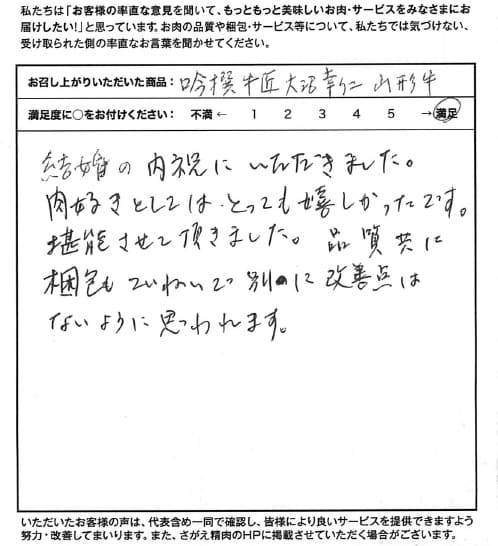 私たちは「お客様の率直な意見を聞いて、もっともっと美味しいお肉・サービスをみなさまにお
届けしたい!」と思っています。お肉の品質や梱包・サービス等について、私たちでは気づけない、
受け取られた側の率直なお言葉を聞かせてください。
お召し上がりいただいた商品: 吟撰 牛匠 大沼幸仁 山形牛
満足度に○をお付けください: 不満 ← 1 2 3 4 5 → 満足
結婚の内祝にいただきました。
肉好きとしては、とっても嬉しかったです。
堪能させて頂きました。品質共に
梱包もていねいで 別に改善点は
ないように思われます。
いただいたお客様の声は、代表含め一同で確認し、皆様により良いサービスを提供できますよう
努力・改善してまいります。また、さがえ精肉のHPに掲載させていただく場合がございます。